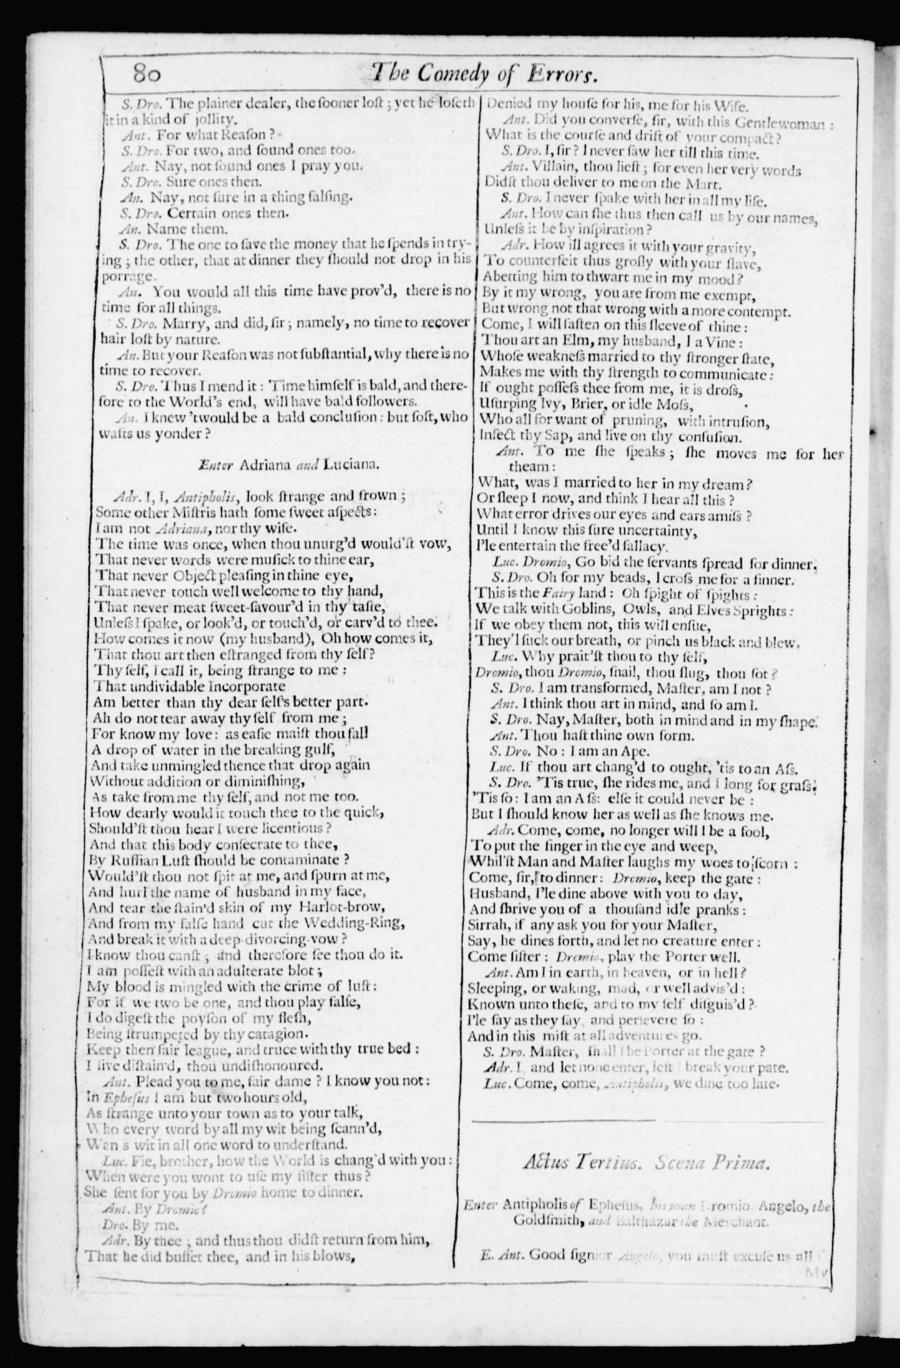 80
The Comedy of Errors.
S. Dro. The plainer dealer, the ſooner loſt; yet he loſeth
it in a kind of jollity.
Ant. For what Reaſon?
S. Dro. For two, and ſound ones too.
Ant. Nay, not ſound ones I pray you.
S. Dro. Sure ones then.
An. Nay, not ſure in a thing falſing.
S. Dro. Certain ones then.
An. Name them.
S. Dro. The one to ſave the money that he ſpends in try-
ing; the other, that at dinner they ſhould not drop in his
porrage.
An. You would all this time have prov'd, there is no
time for all things.
S. Dro. Marry, and did, ſir; namely, no time to recover
hair loſt by nature.
An. But your Reaſon was not ſubſtantial, why there is no
time to recover.
S. Dro. Thus I mend it: Time himſelf is bald, and there-
fore to the World's end, will have bald followers.
An. I knew 'twould be a bald concluſion: but ſoft, who
wafts us yonder?
Enter Adriana and Luciana.
Adr. I, I, Antipholis, look ſtrange and frown;
Some other Miſtris hath ſome ſweet aſpects:
I am not Adriana, nor thy wife.
The time was once, when thou unurg'd would'ſt vow,
That never words were muſick to thine ear,
That never Object pleaſing in thine eye,
That never touch well welcome to thy hand,
That never meat ſweet-ſavour'd in thy taſte,
Unleſs I ſpake, or look'd, or touch'd, or carv'd to thee.
How comes it now (my husband), Oh how comes it,
That thou art then eſtranged from thy ſelf?
Thy ſelf, I call it, being ſtrange to me:
That undividable Incorporate
Am better than thy dear ſelf's better part.
Ah do not tear away thy ſelf from me;
For know my love: as eaſie maiſt thou fall
A drop of water in the breaking gulf,
And take unmingled thence that drop again
Without addition or diminiſhing,
As take from me thy ſelf, and not me too.
How dearly would it touch thee to the quick,
Should'ſt thou hear I were licentious?
And that this body conſecrate to thee,
By Ruffian Luſt ſhould be contaminate?
Would'ſt thou not ſpit at me, and ſpurn at me,
And hurl the name of husband in my face,
And tear the ſtain'd skin of my Harlot-brow,
And from my falſe hand cut the Wedding-Ring,
And break it with a deep divorcing vow?
I know thou canſt; and therefore ſee thou do it.
I am poſſeſt with an adulterate blot;
My blood is mingled with the crime of luſt:
For if we two be one, and thou play falſe,
I do digeſt the poyſon of my fleſh,
Being ſtrumpeted by thy catagion.
Keep then fair league, and truce with thy true bed:
I live diſtain'd, thou undiſhonoured.
Ant. Plead you to me, fair dame? I know you not:
In Epheſus I am but two hours old,
As ſtrange unto your town as to your talk,
Who every word by all my wit being ſcann'd,
Wan s wit in all one word to underſtand.
Luc. Fie, brother, how the World is chang'd with you:
When were you wont to uſe my ſiſter thus?
She ſent for you by Dromio home to dinner.
Ant. By Dromio?
Dro. By me.
Adr. By thee; and thus thou didſt return from him,
That he did buffet thee, and in his blows,
Denied my houſe for his, me for his Wife.
Ant. Did you converſe, ſir, with this Gentlewoman:
What is the courſe and drift of your compact?
S. Dro. I, ſir? I never ſaw her till this time.
Ant. Villain, thou lieſt; for even her very words
Didſt thou deliver to me on the Mart.
S. Dro. I never ſpake with her in all my life.
Ant. How can ſhe thus then call us by our names,
Unleſs it be by inſpiration?
Adr. How ill agrees it with your gravity,
To counterfeit thus groſly with your ſlave,
Abetting him to thwart me in my mood?
By it my wrong, you are from me exempt,
But wrong not that wrong with a more contempt.
Come, I will faſten on this ſleeve of thine:
Thou art an Elm, my husband, I a Vine:
Whoſe weakneſs married to thy ſtronger ſtate,
Makes me with thy ſtrength to communicate:
If ought poſſeſs thee from me, it is droſs,
Uſurping Ivy, Brier, or idle Moſs,
Who all for want of pruning, with intruſion,
Infect thy Sap, and live on thy confuſion.
Ant. To me ſhe ſpeaks; ſhe moves me for her
theam:
What, was I married to her in my dream?
Or ſleep I now, and think I hear all this?
What error drives our eyes and ears amiſs?
Until I know this ſure uncertainty,
I'le entertain the free'd fallacy.
Luc. Dromio, Go bid the ſervants ſpread for dinner.
S. Dro. Oh for my beads, I croſs me for a ſinner.
This is the Fairy land: Oh ſpight of ſpights:
We talk with Goblins, Owls, and Elves Sprights:
If we obey them not, this will enſue,
They'l ſuck our breath, or pinch us black and blew.
Luc. Why prait'ſt thou to thy ſelf,
Dromio, thou Dromio, ſnail, thou ſlug, thou ſot?
S. Dro. I am transformed, Maſter, am I not?
Ant. I think thou art in mind, and ſo am I.
S. Dro. Nay, Maſter, both in mind and in my ſhape.
Ant. Thou haſt thine own form.
S. Dro. No: I am an Ape.
Luc. If thou art chang'd to ought, 'tis to an Aſs.
S. Dro. 'Tis true, ſhe rides me, and I long for graſs.
'Tis ſo: I am an Aſs: elſe it could never be:
But I ſhould know her as well as ſhe knows me.
Adr. Come, come, no longer will I be a fool,
To put the finger in the eye and weep,
Whil'ſt Man and Maſter laughs my woes to ſcorn:
Come, ſir, to dinner: Dromio, keep the gate:
Husband, I'le dine above with you to day,
And ſhrive you of a thouſand idle pranks:
Sirrah, if any ask you for your Maſter,
Say, he dines forth, and let no creature enter:
Come ſiſter: Dromio, play the Porter well.
Ant. Am I in earth, in heaven, or in hell?
Sleeping, or waking, mad, or well advis'd:
Known unto theſe, and to my ſelf diſguis'd?
I'le ſay as they ſay, and perſevere ſo:
And in this miſt at all adventures go.
S. Dro. Maſter, ſhall I be Porter at the gate?
Adr. I, and let none enter, leſt I break your pate.
Luc. Come, come, Antipholis, we dine too late.
Actus Tertius. Scena Prima.
Enter Antipholis of Epheſus, his man Dromio, Angelo, the
Goldſmith, and Balthazar the Merchant.
E. Ant. Good ſignior Angelo, you muſt excuſe us all
My